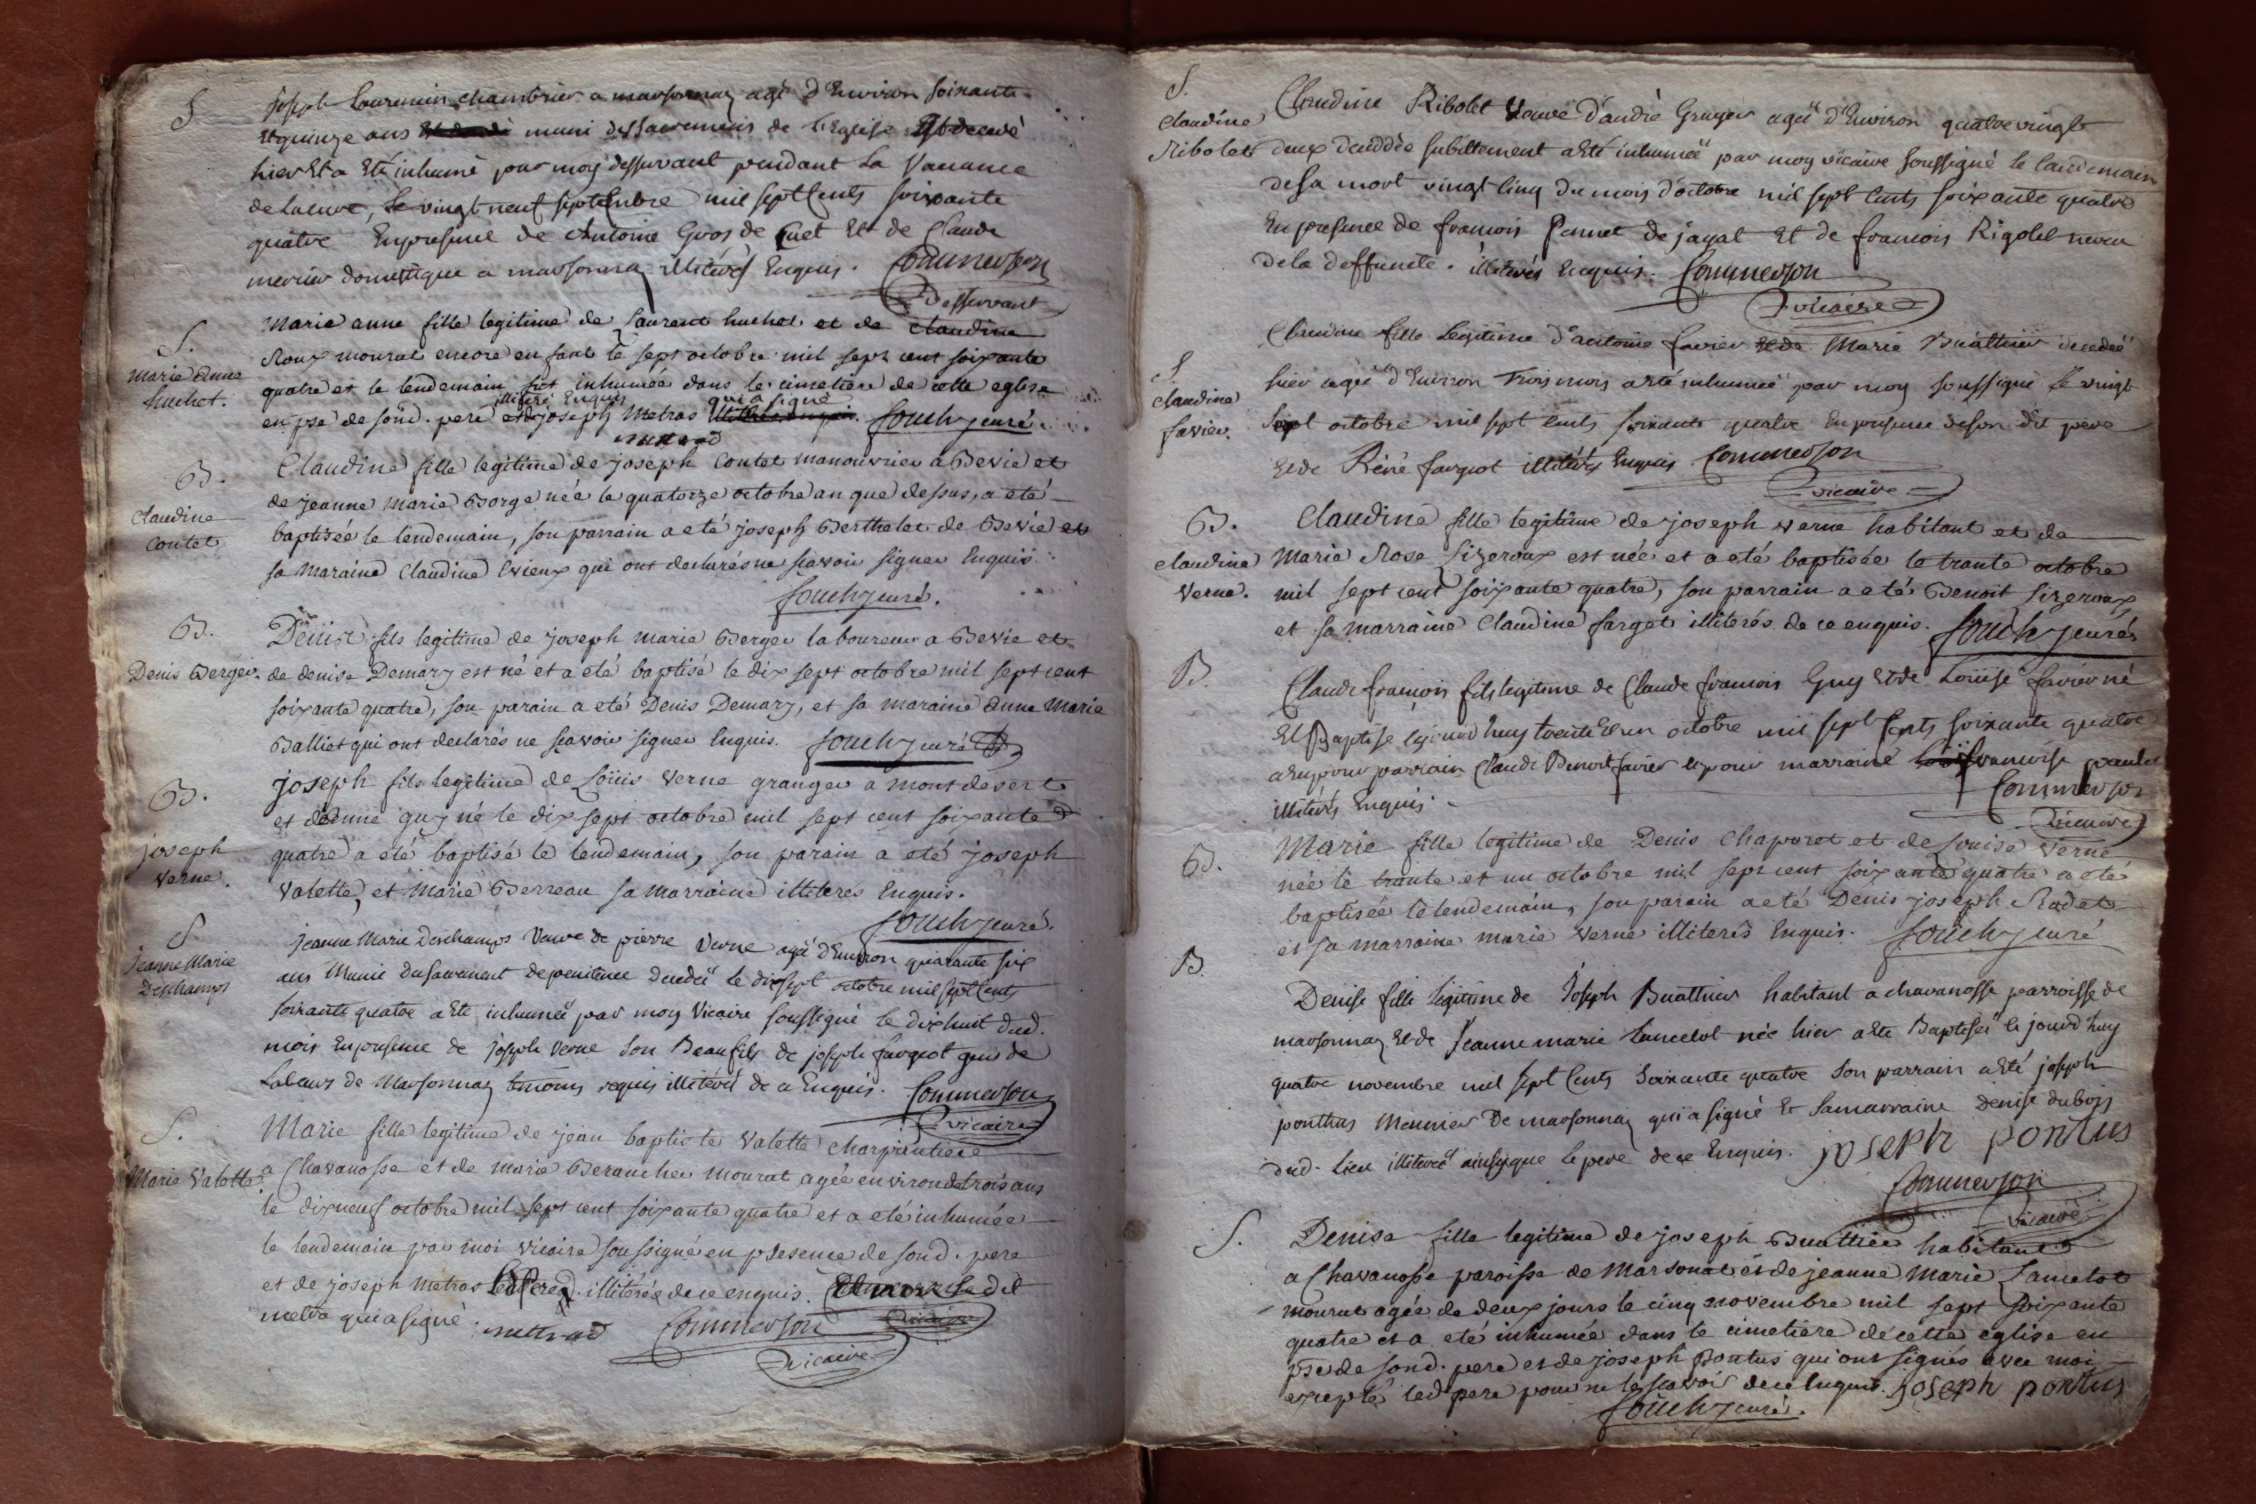 S
joseph Laurencin chambrier a marsonnay agé d'Environ soixante
Et quinze ans muni des sacremens de l'Eglise Est decedé
hier Et a Eté inhumé par moy dessurvant pendant La Vacance
de La cure, le vingt neuf septembre mil sept Cents soixante
quatre En presence de Antoine Gros de Cuet Et de Claude
mercier domestique a marsonnay illiterés Enquis. Commerson
Dessurvant
S.
marie anne
huchet.
Marie anne fille legitime de Laurent huchet et de claudine
Roux mourut encore enfant le sept octobre mil sept cent soixante
quatre et le lendemain fut inhumée dans le cimetiere de cette eglise
illiteré Enquis qui a signé
en pse de sond. pere et de joseph Metras fouchy curé.
metrad
B.
claudine
contet
Claudine fille legitime de joseph Contet manouvrier a Bevie et
de jeanne marie Borge née le quatorze octobre an que dessus, a eté
baptisée le lendemain, son parrain a eté joseph Berthelet de Bevie et
sa maraine Claudine Evieux qui ont declarés ne scavoir signer Enquis
fouchy curé.
B.
Denis Berger.
Denis fils legitime de joseph marie Berger laboureur a Bevie et
de denise Demary est né et a eté baptisé le dix sept octobre mil sept cent
soixante quatre, son parain a eté Denis Demary, et sa maraine anne Marie
Balliet qui ont declarés ne scavoir signer Enquis. fouchy curé
B.
joseph
verne.
joseph fils legitime de Loüis verne granger a montdesert
et d'anne guy né le dix sept octobre mil sept cent soixante
quatre a eté baptisé le lendemain, son parain a eté joseph
valette, et marie Berreau sa marraine illiteres Enquis.
fouchy curé.
S
Jeanne Marie
Deschamps
jeanne Marie Deschamps Veuve de pierre verne agé d'Environ quarante six
ans Munie du sacrement de penitence decedeé le dix sept octobre mil sept Cents
soixante quatre a Eté inhumeé par moy Vicaire soussigné le dixhuit dud.
mois En presence de joseph verne son Beaufils de joseph farguot guis de
Labeurs de Marsonnay temoins requis illiterés de ce Enquis. Commerson
vicaire
S.
Marie Valette.
Marie fille legitime de jean baptiste valette charpentiere
a Chavanosse et de marie Berancher mourut agée environ de trois ans
le dixneuf octobre mil sept cent soixante quatre et a eté inhumée
le lendemain par moi vicaire soussigné en presence de sond. pere
et de joseph metras led pere illiterés de ce enquis. led
metra qui a signé metrad Commerson
vicaire
S.
Claudine
Ribolet
Claudine Ribolet veuve d'andré Gruyer ageé d'Environ quatre vingt
deux decedée subittement a Eté inhumeé par moy vicaire soussigné le landemain
de sa mort vingt cinq du mois d'octobre mil sept Cents soixante quatre
En presence de francois pannet de jayat Et de francois Rigolet neveu
de la deffuncte. illiterés Enquis. Commerson
vicaire
S
claudine
favier.
Claudine fille legitime d'antoine favier Et de Marie Buathier decedeé
hier ageé d'Environ Trois mois a eté inhumeé par moy soussigné le vingt
sept octobre mil sept Cents soixante quatre En presence de son dit pere
Et de Réné farguot illiterés Enquis Commerson
vicaire
B.
claudine
verne.
Claudine fille legitime de joseph verne habitant et de
Marie Rose Sizeroux est née et a eté baptisée le trante octobre
mil sept cent soixante quatre, son parrain a eté Benoit Sizeroux
et sa marraine Claudine farget illiterés de ce enquis. fouchy curé
B
Claude francois fils legitime de Claude francois Guy Et de Loüise favier né
Et Baptisé cejourd'huy trente Et un octobre mil sept Cents soixante quatre
a Eu pour parrain Claude Benoit favier Et pour marraine francoise paulet
illiterés Enquis. Commerson
vicaire
B.
Marie fille legitime de Denis Chaporet et de Louise verne
née le trante et un octobre mil sept cent soixante quatre a eté
baptisée le lendemain, son parain a eté Denis joseph Radet
et sa marraine marie verne illiterés Enquis. fouchy curé
B.
Denise fille legitime de Joseph Buathier habitant a chavanosse parroisse de
marsonnay Et de Jeanne marie Lancelot née hier a Eté Baptiseé cejourd'huy
quatre novembre mil sept Cents soixante quatre son parrain a Eté joseph
ponthus Meunier De marsonnay qui a signé Et sa marraine Denise dubois
dud. lieu illitereé ainsy que le pere de ce Enquis. joseph pontus
Commerson
vicaire
S.
Denise fille legitime de joseph Buathier habitant
a Chavanosse paroisse de Marsonat et de jeanne Marie Lancelot
mourut agée de deux jours le cinq novembre mil sept soixante
quatre et a eté inhumée dans le cimetiere de cette eglise en
pse de sond. pere et de joseph Pontus qui ont signés avec moi
excepté led pere pour ne le scavoir de ce Enquis. joseph pontus
fouchy curé.